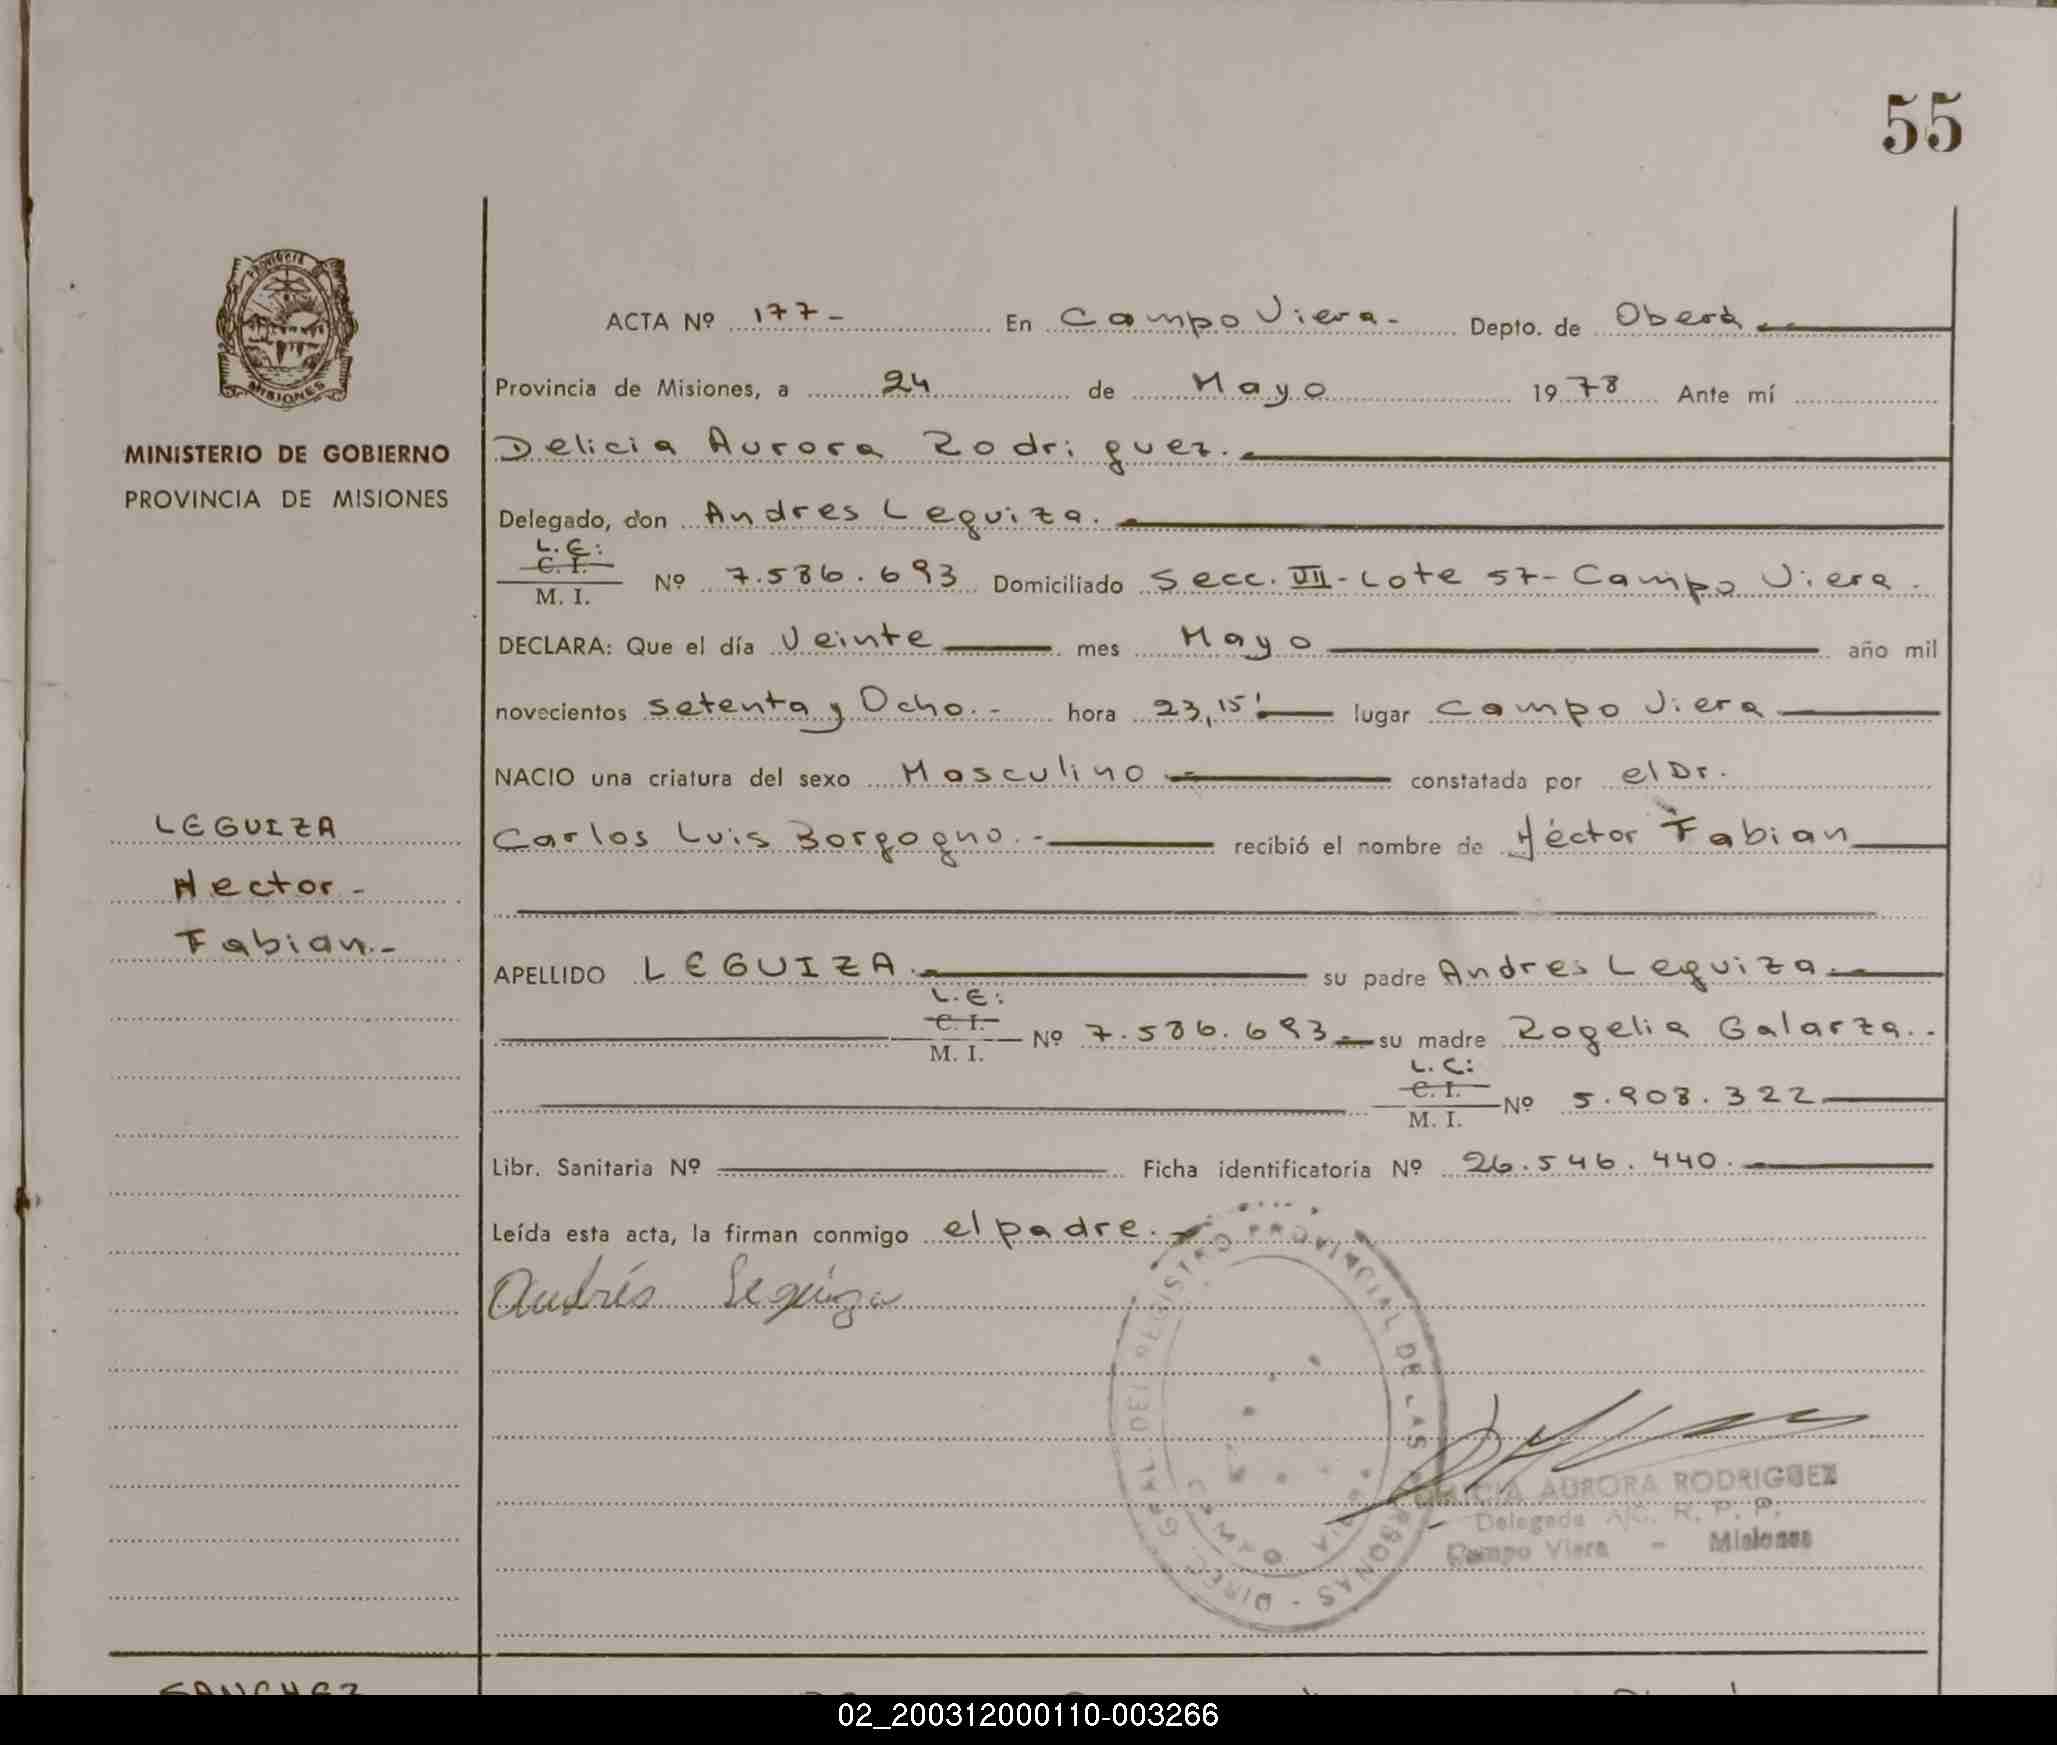 55
PROVINCIA DE
MISIONES
MINISTERIO DE GOBIERNO
PROVINCIA DE MISIONES
LEGUIZA
Hector -
Fabian.-
ACTA Nº 177- En Campo Viera- Depto. de Oberá
Provincia de Misiones, a 24 de Mayo 1978 Ante mí
Delicia Aurora Rodriguez.
Delegado, don Andres Leguiza.
L.E:
C. I.
M. I. Nº 7.586.693 Domiciliado Secc. VII - Lote 57 - Campo Viera.
DECLARA: Que el día Veinte mes Mayo año mil
novecientos setenta y Ocho.- hora 23,15' lugar Campo Viera
NACIO una criatura del sexo Masculino constatada por el Dr.
Carlos Luis Borgogno.- recibió el nombre de Héctor Fabian
APELLIDO LEGUIZA. su padre Andres Leguiza.
L.E:
C. I.
M. I. Nº 7.586.693 su madre Rogelia Galarza.-
L.C:
C. I.
M. I. Nº 5.908.322
Libr. Sanitaria Nº Ficha identificatoria Nº 26.546.440.
Leída esta acta, la firman conmigo el padre.
Andrés Leguiza
DIREC. GRAL. DEL REGISTRO PROVINCIAL DE LAS PERSONAS -
CAMPO VIERA
DELICIA AURORA RODRIGUEZ
Delegada A/C. R. P. P.
Campo Viera - Misiones
SANCHEZ
02_200312000110-003266